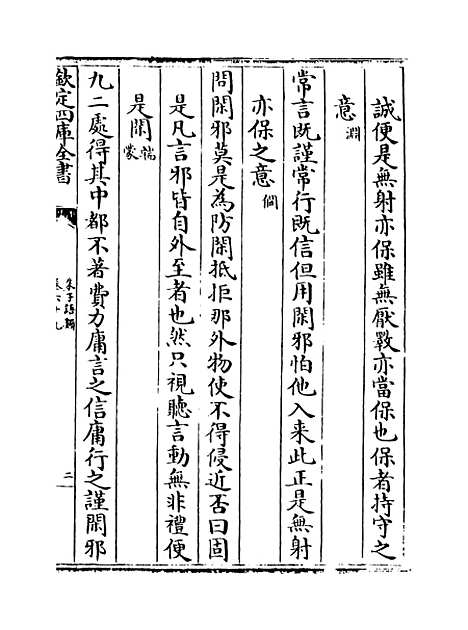 誠便是無射亦保雖無厭斁亦當保也保者持守之
意淵
常言既謹常行既信但用閑邪怕他入来此正是無射
亦保之意僩
問閑邪莫是為防閑抵拒那外物使不得侵近否曰固
是凡言邪皆自外至者也然只視聽言動無非禮便
是閑端蒙
九二處得其中都不著費力庸言之信庸行之謹閑邪
欽定四庫全書
朱子語類
卷六十九
二